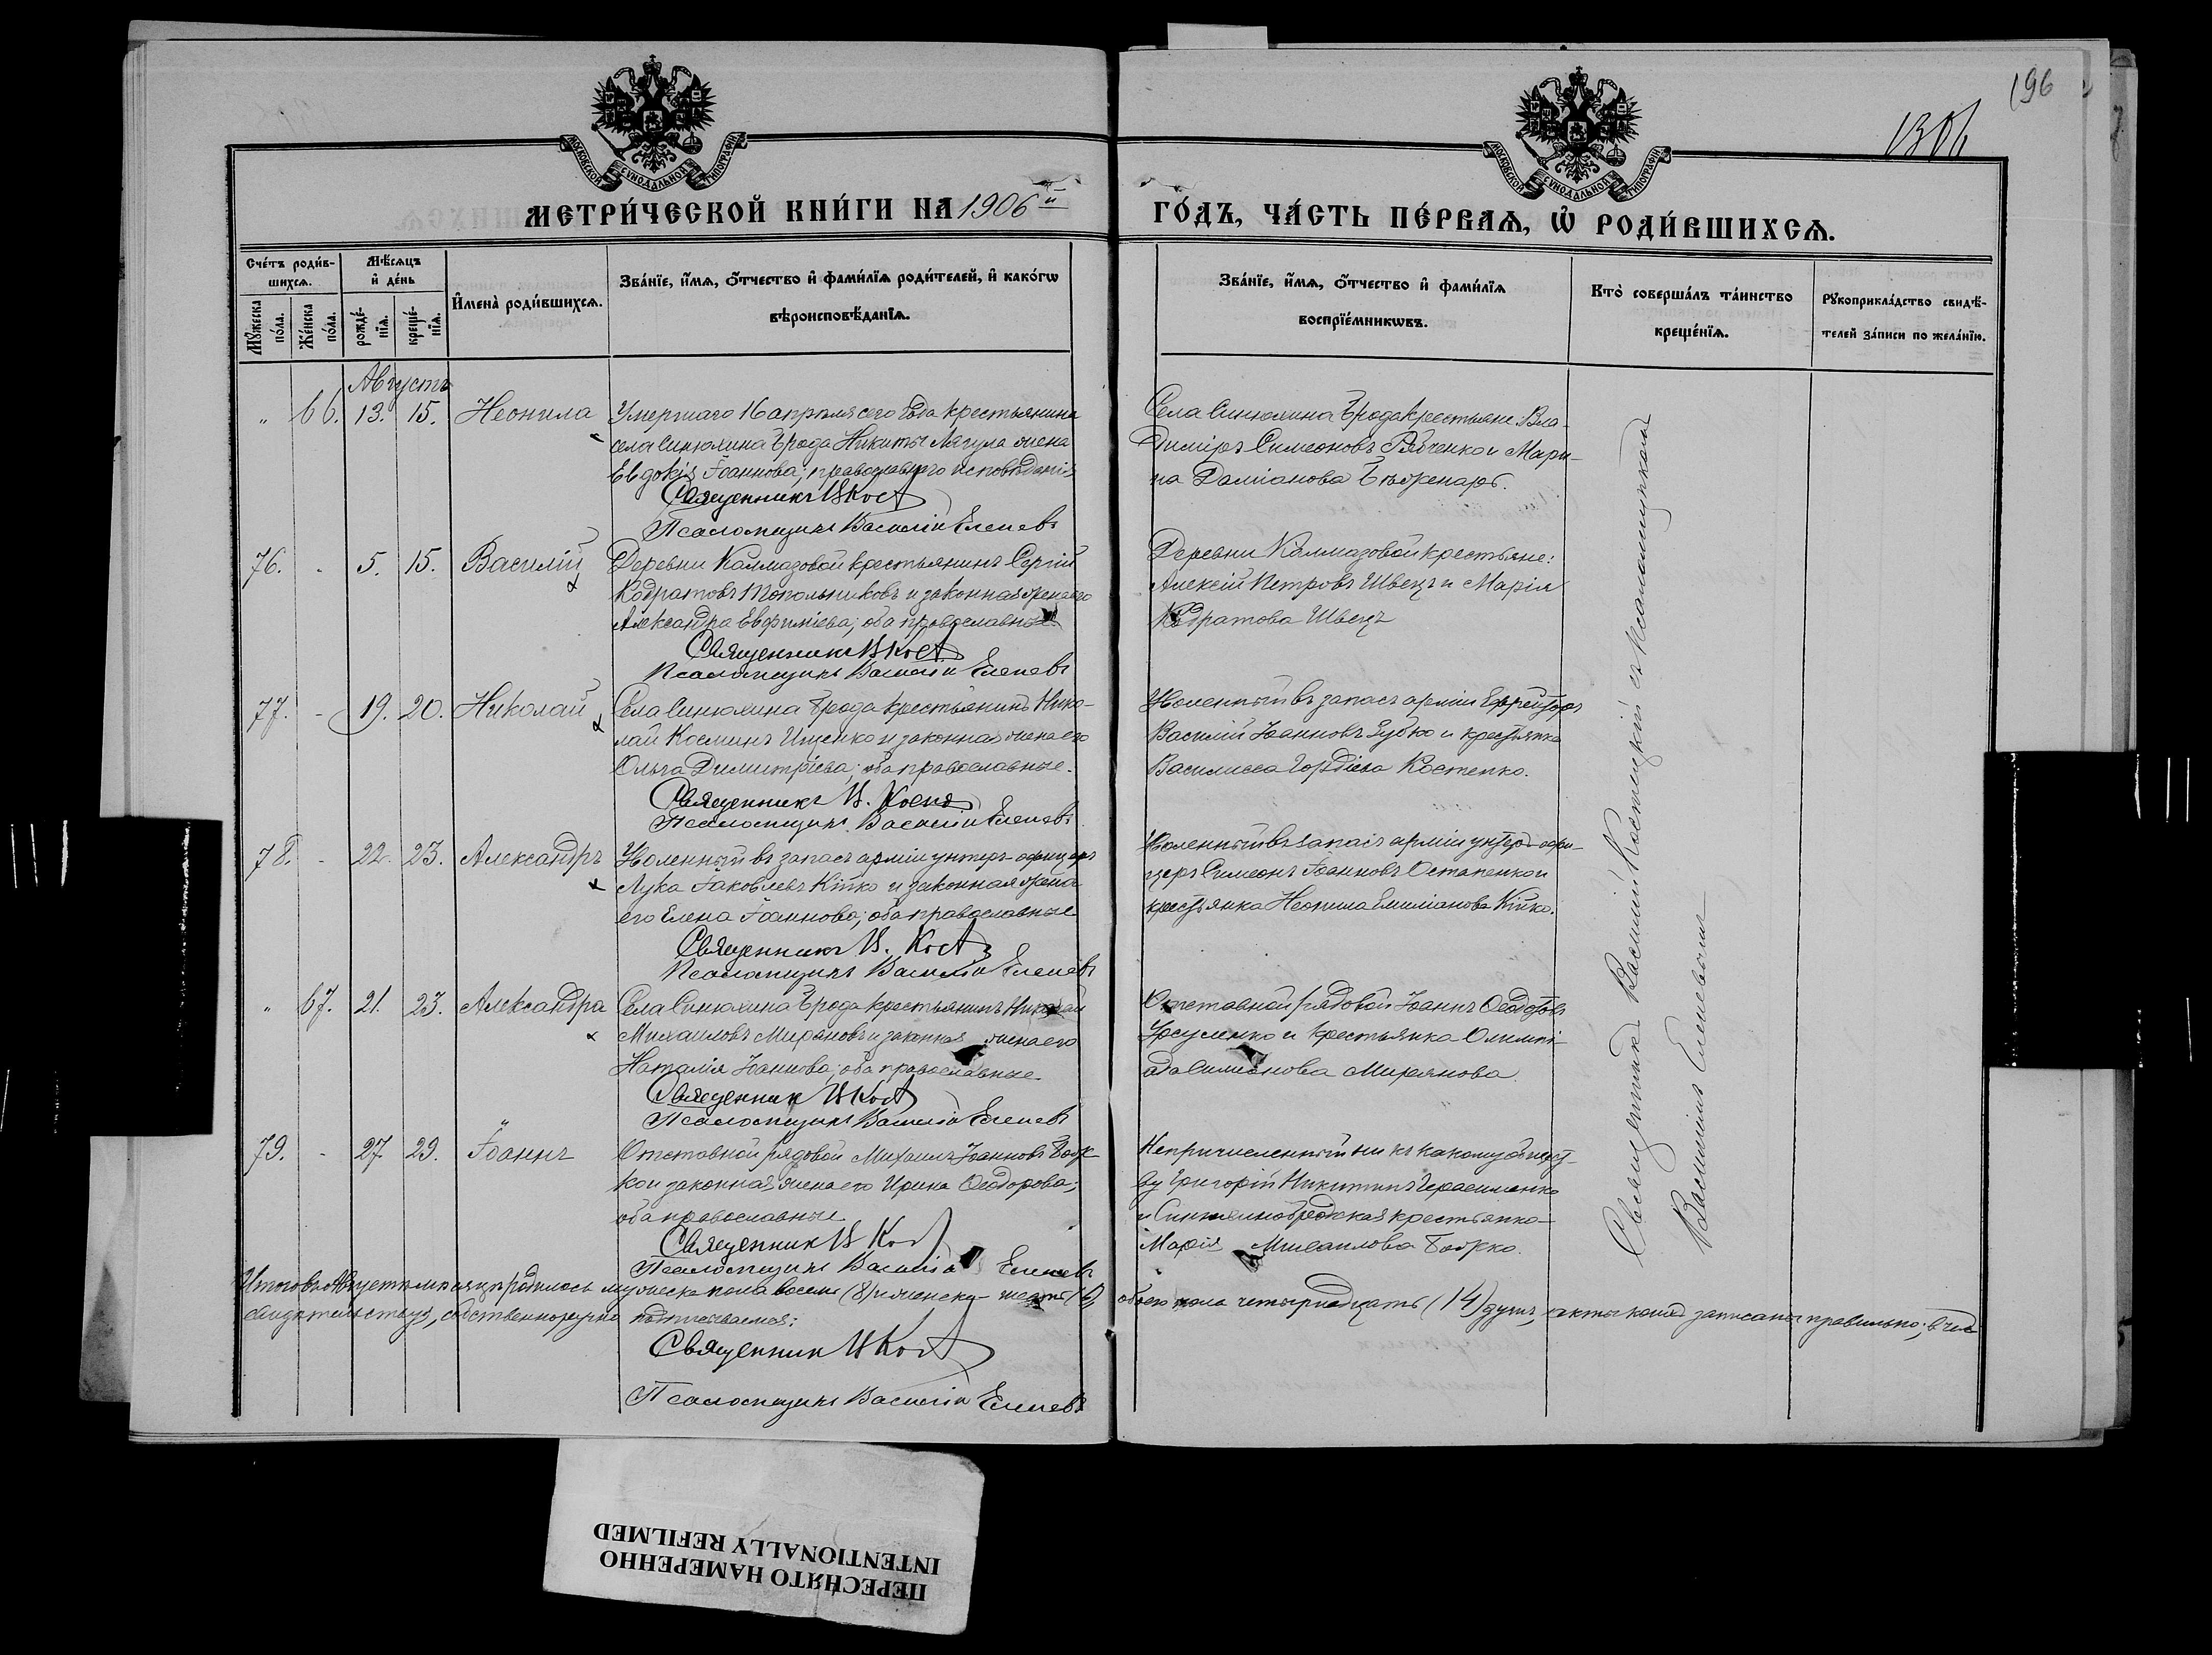 196
1306
МОСКОВСКОЙ СѴНОДАЛЬНОЙ ТИПОГРАФІИ
МОСКОВСКОЙ СѴНОДАЛЬНОЙ ТИПОГРАФІИ
МЕТРИ́ЧЕСКОЙ КНИ́ГИ НА 1906й
ГО́ДЪ, ЧА́СТЬ ПЕ́РВАѦ, Ѡ РОДИ́ВШИХСѦ.
Сче́тъ роди́в-
шихсѧ.
Мꙋ́жеска по́ла.
Же́нска по́ла.
Мѣ́сѧцъ
и де́нь
рожде́-
нїѧ.
креще́-
нїѧ.
Имена̀ роди́вшихсѧ.
Зва́нїе, и́мѧ, о́тчество и фами́лїѧ роди́телей, и како́гѡ
вѣроисповѣ́данїѧ.
Зва́нїе, и́мѧ, о́тчество и фами́лїѧ
воспрїе́мникѡвъ.
Кто̀ соверша́лъ та́инство
креще́нїѧ.
Рꙋкоприкла́дство свидѣ́-
телей за́писи по жела́нїю.
Августъ
" 66. 13. 15. Неонила
Умершаго 16 апрѣля сего года крестьянина
села Синюхина Брода Никиты Лягула жена
Евдокія Іоаннова; православнаго исповѣданія
Священникъ В Кост
Псаломщикъ Василій Еленевъ
Села Синюхина Брода крестьяне: Вла-
диміръ Симеоновъ Рябченко и Мари-
на Даміанова
76. - 5. 15. Василій
Деревни Калмазовой крестьянинъ Сергій
Кодратовъ Топольниковъ и законная жена его
Александра Евфиміева; оба православные.
Священникъ В Кост
Псаломщикъ Василій Еленевъ
Деревни Калмазовой крестьяне:
Алексій Петровъ Швецъ и Марія
Кодратова Швецъ
77. - 19. 20. Николай
Села Синюхина Брода крестьянинъ Нико-
лай Косминъ Ищенко и законная жена его
Ольга Димитріева; оба православные.
Священникъ В. Кост
Псаломщикъ Василій Еленевъ
Уволенный въ запасъ арміи Ефрейторъ
Василій Іоанновъ Зубко и крестьянка
Василисса Гордіева Костенко.
78. - 22. 23. Александръ
Уволенный въ запасъ арміи унтеръ-офицеръ
Лука Іаковлевъ Кійко и законная жена
его Елена Іоаннова; оба православные
Священникъ В. Кост
Псаломщикъ Василій Еленевъ
Уволенный въ запасъ арміи унтеръ-офи-
церъ Симеонъ Іоанновъ Остапенко и
крестьянка Неонила Емиліанова Кійко.
" 67. 21. 23. Александра
Села Синюхина Брода крестьянинъ Николай
Михаиловъ Миряновъ и законная жена его
Наталія Іоаннова; оба православные
Священник В Кост
Псаломщикъ Василій Еленевъ
Отставной рядовой Іоаннъ Ѳеодотовъ
и крестьянка Олимпі-
ада Симеонова Мирянова.
79. - 27 29. Іоаннъ
Отставной рядовой Михаилъ Іоанновъ Бобр-
ко и законная жена его Ирина Ѳеодорова;
оба православные
Священник В Кост
Псаломщикъ Василій Еленевъ
Непричисленный ни къ какому общест-
ву Григорій Никитинъ Герасименко
и Синюхинобродская крестьянка
Марія Михаилова Бобрко.
Священникъ Василій Костецкій съ псаломщикомъ
Василіемъ Еленевымъ
Итого въ Августѣ мѣсяцѣ родилось мужеска пола восемь (8) и женска – шесть (6), обоего пола четырнадцать (14) душъ, акты коихъ записаны правильно; въ чемъ
свидѣтельствуя, собственноручно подписываемся:
Священник В Кост
Псаломщикъ Василій Еленевъ
ПЕРЕСНЯТО НАМЕРЕННО
INTENTIONALLY REFILMED